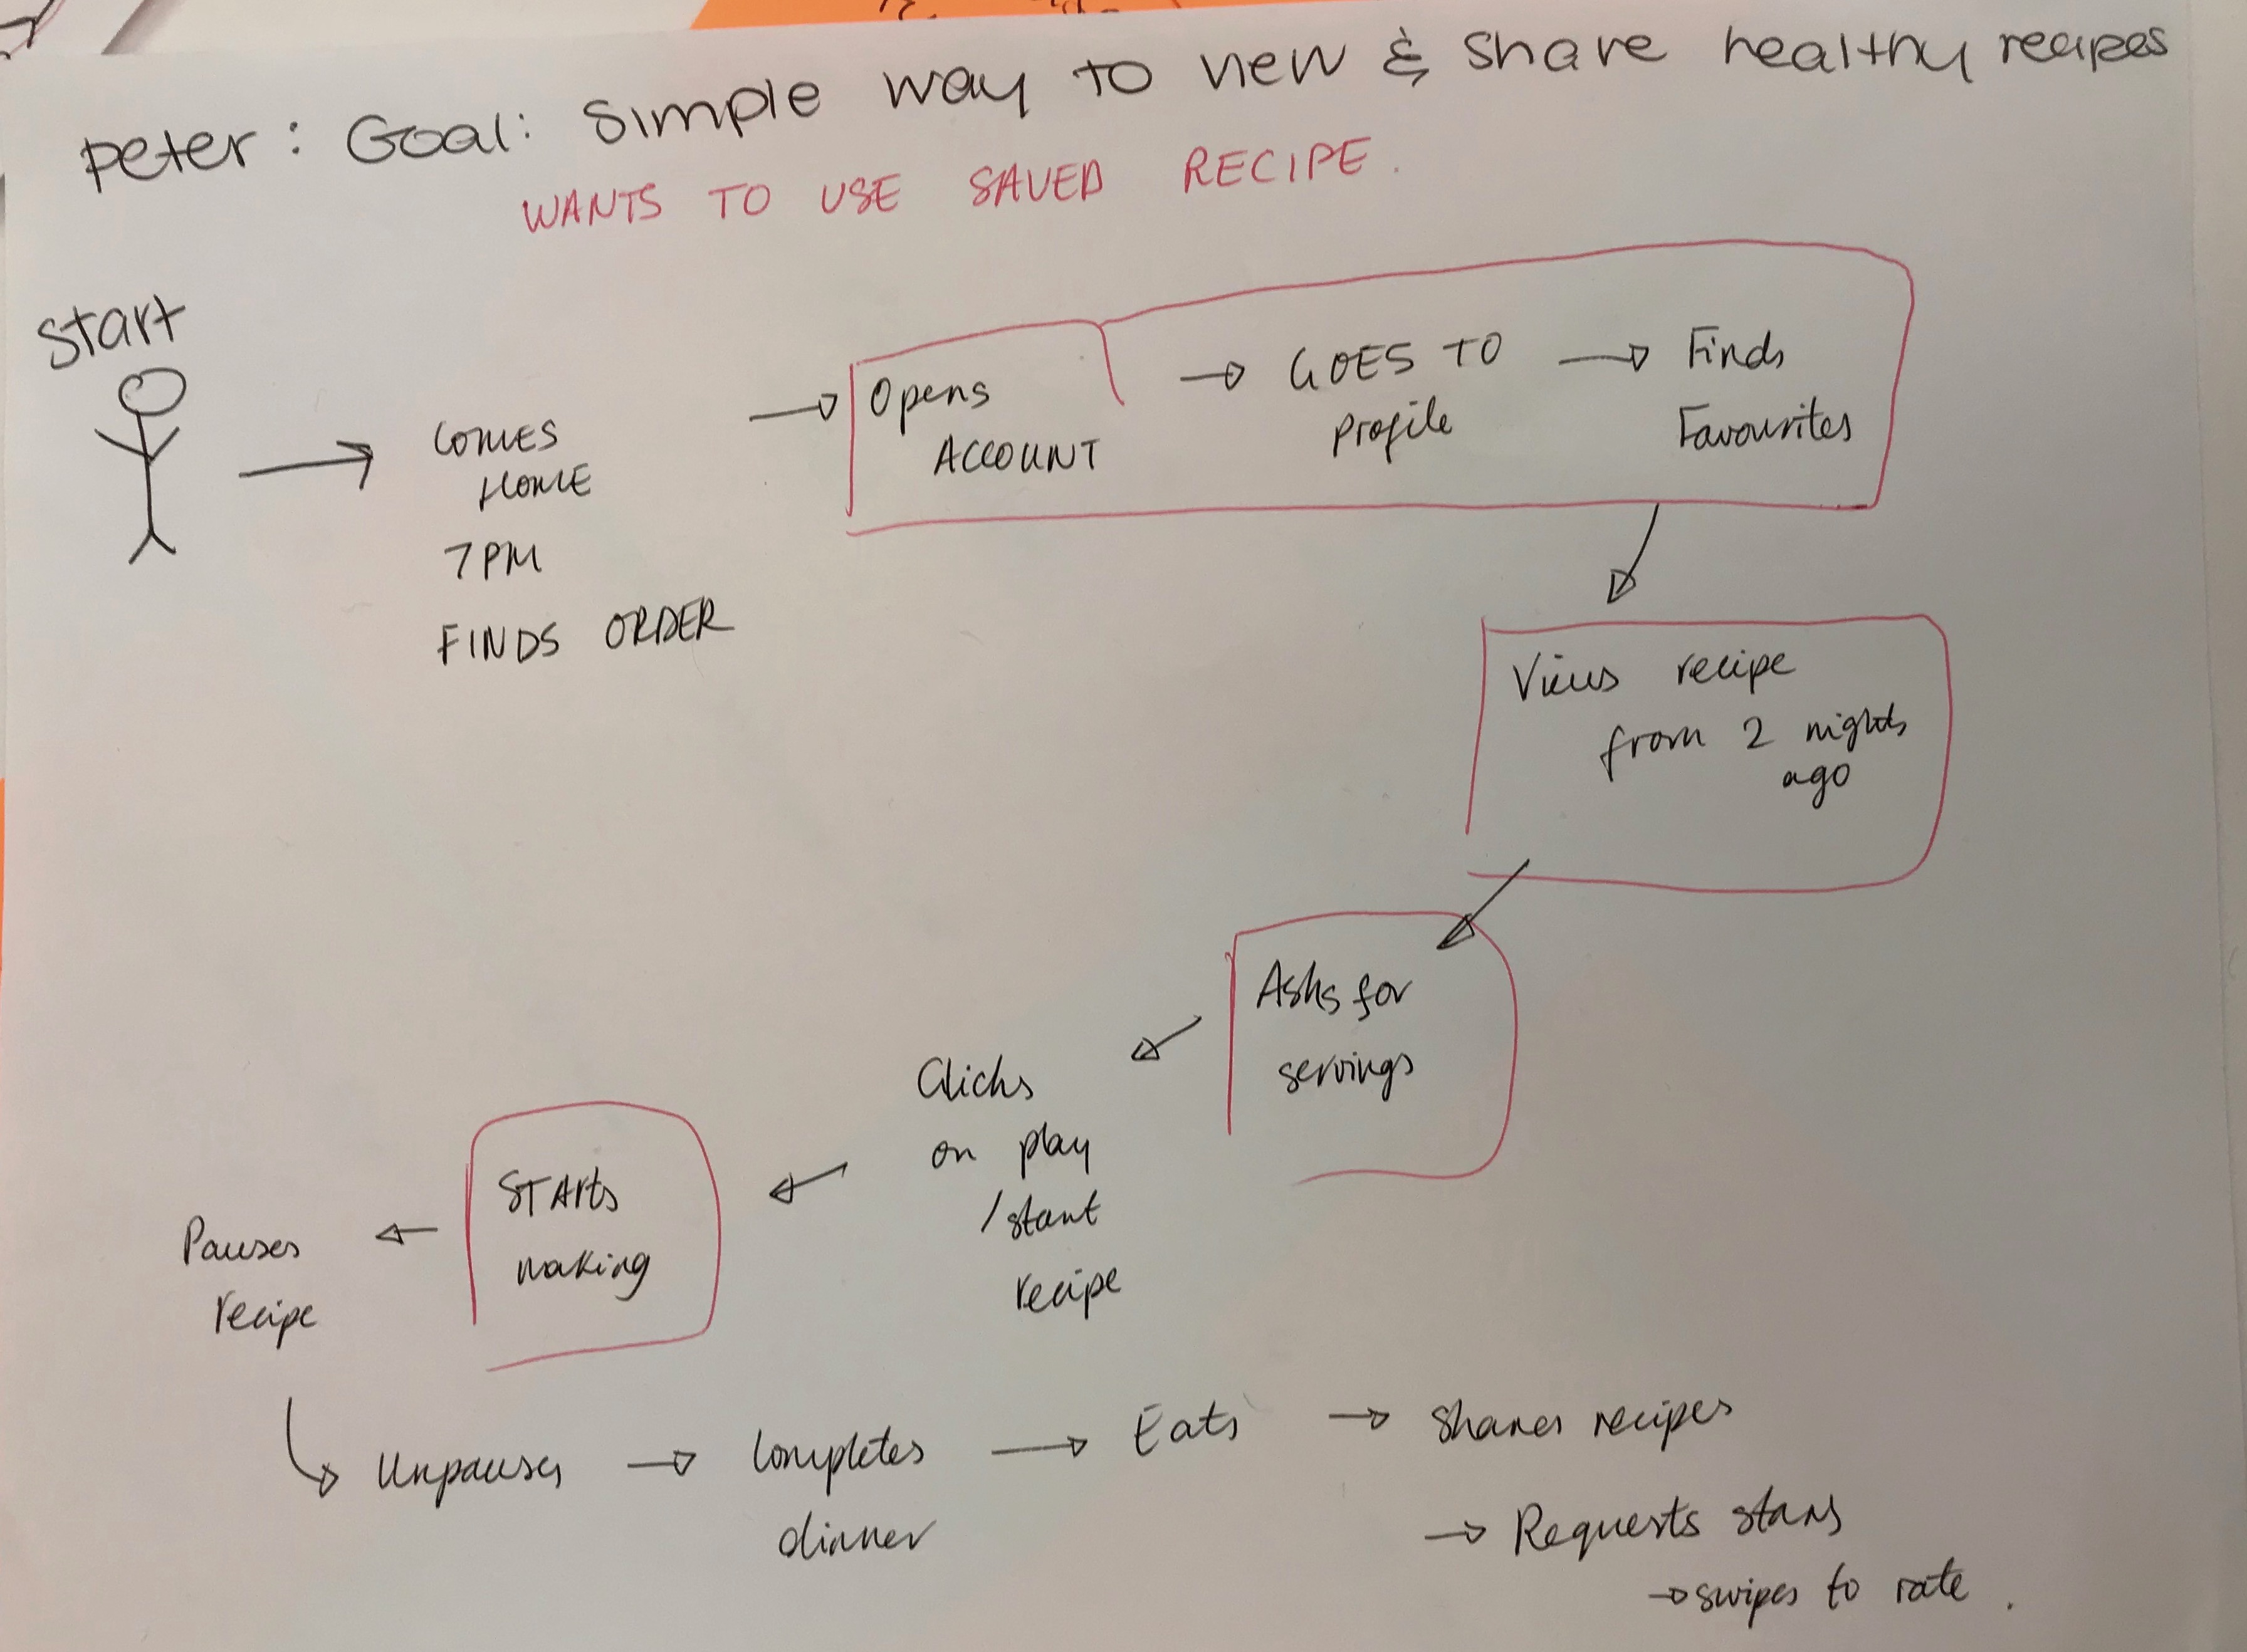 Peter: Goal: Simple way to view & share healthy recipes
WANTS TO USE SAVED RECIPE.
Start
COMES
HOME
7PM
FINDS ORDER
Opens
ACCOUNT
GOES TO
Profile
Finds
Favourites
Views recipe
from 2 nights
ago
Asks for
servings
Clicks
on play
/start
recipe
STARTS
making
Pauses
recipe
Unpauses
Completes
dinner
Eats
Shares recipes
Requests stars
swipes to rate.